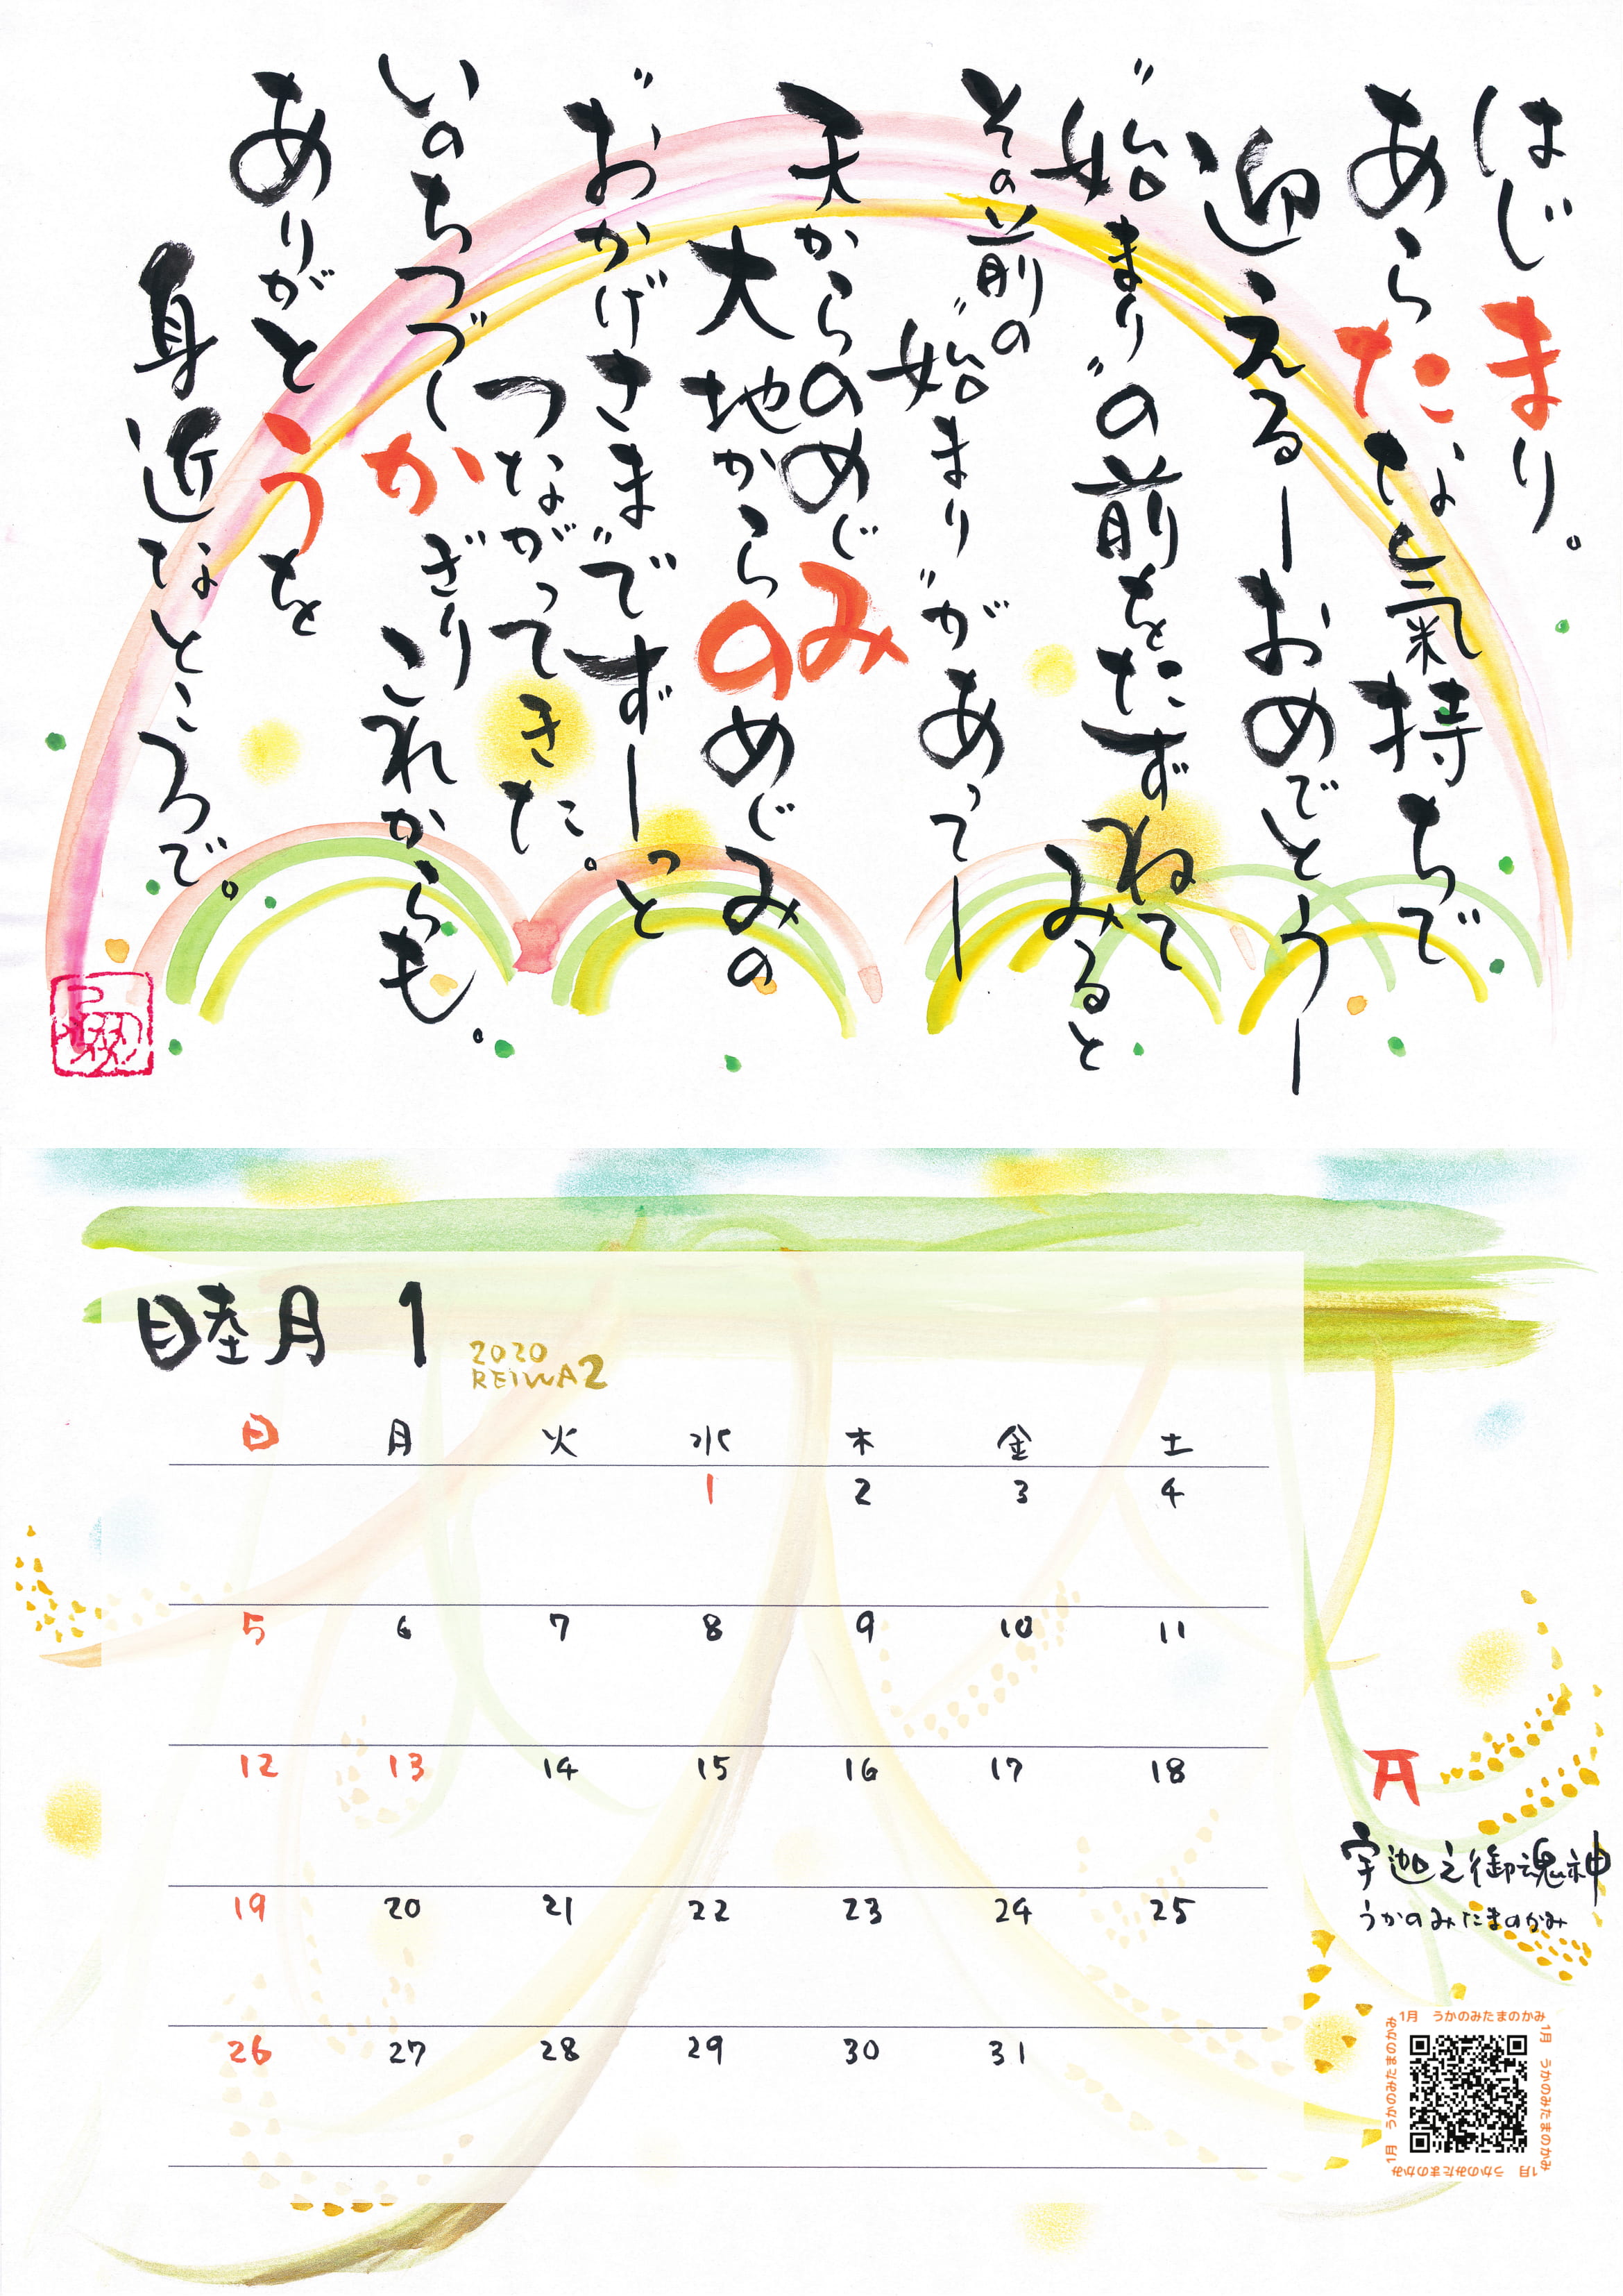 はじまり。
あらたな氣持ちで
迎えるーおめでとうー
"始まり"の前をたずねてみると
その前の
"始まり"があってー
天からのめぐみ
大地からのめぐみの
"おかげさま"でずーっと
つながってきた。
いのちつづくかぎりこれからも。
ありがとうを
身近なところで。
睦月 1
2020
REIWA2
日 月 火 水 木 金 土
1 2 3 4
5 6 7 8 9 10 11
12 13 14 15 16 17 18
19 20 21 22 23 24 25
26 27 28 29 30 31
宇迦之御魂神
うかのみたまのかみ
1月 うかのみたまのかみ
1月 うかのみたまのかみ
1月 うかのみたまのかみ
1月 うかのみたまのかみ